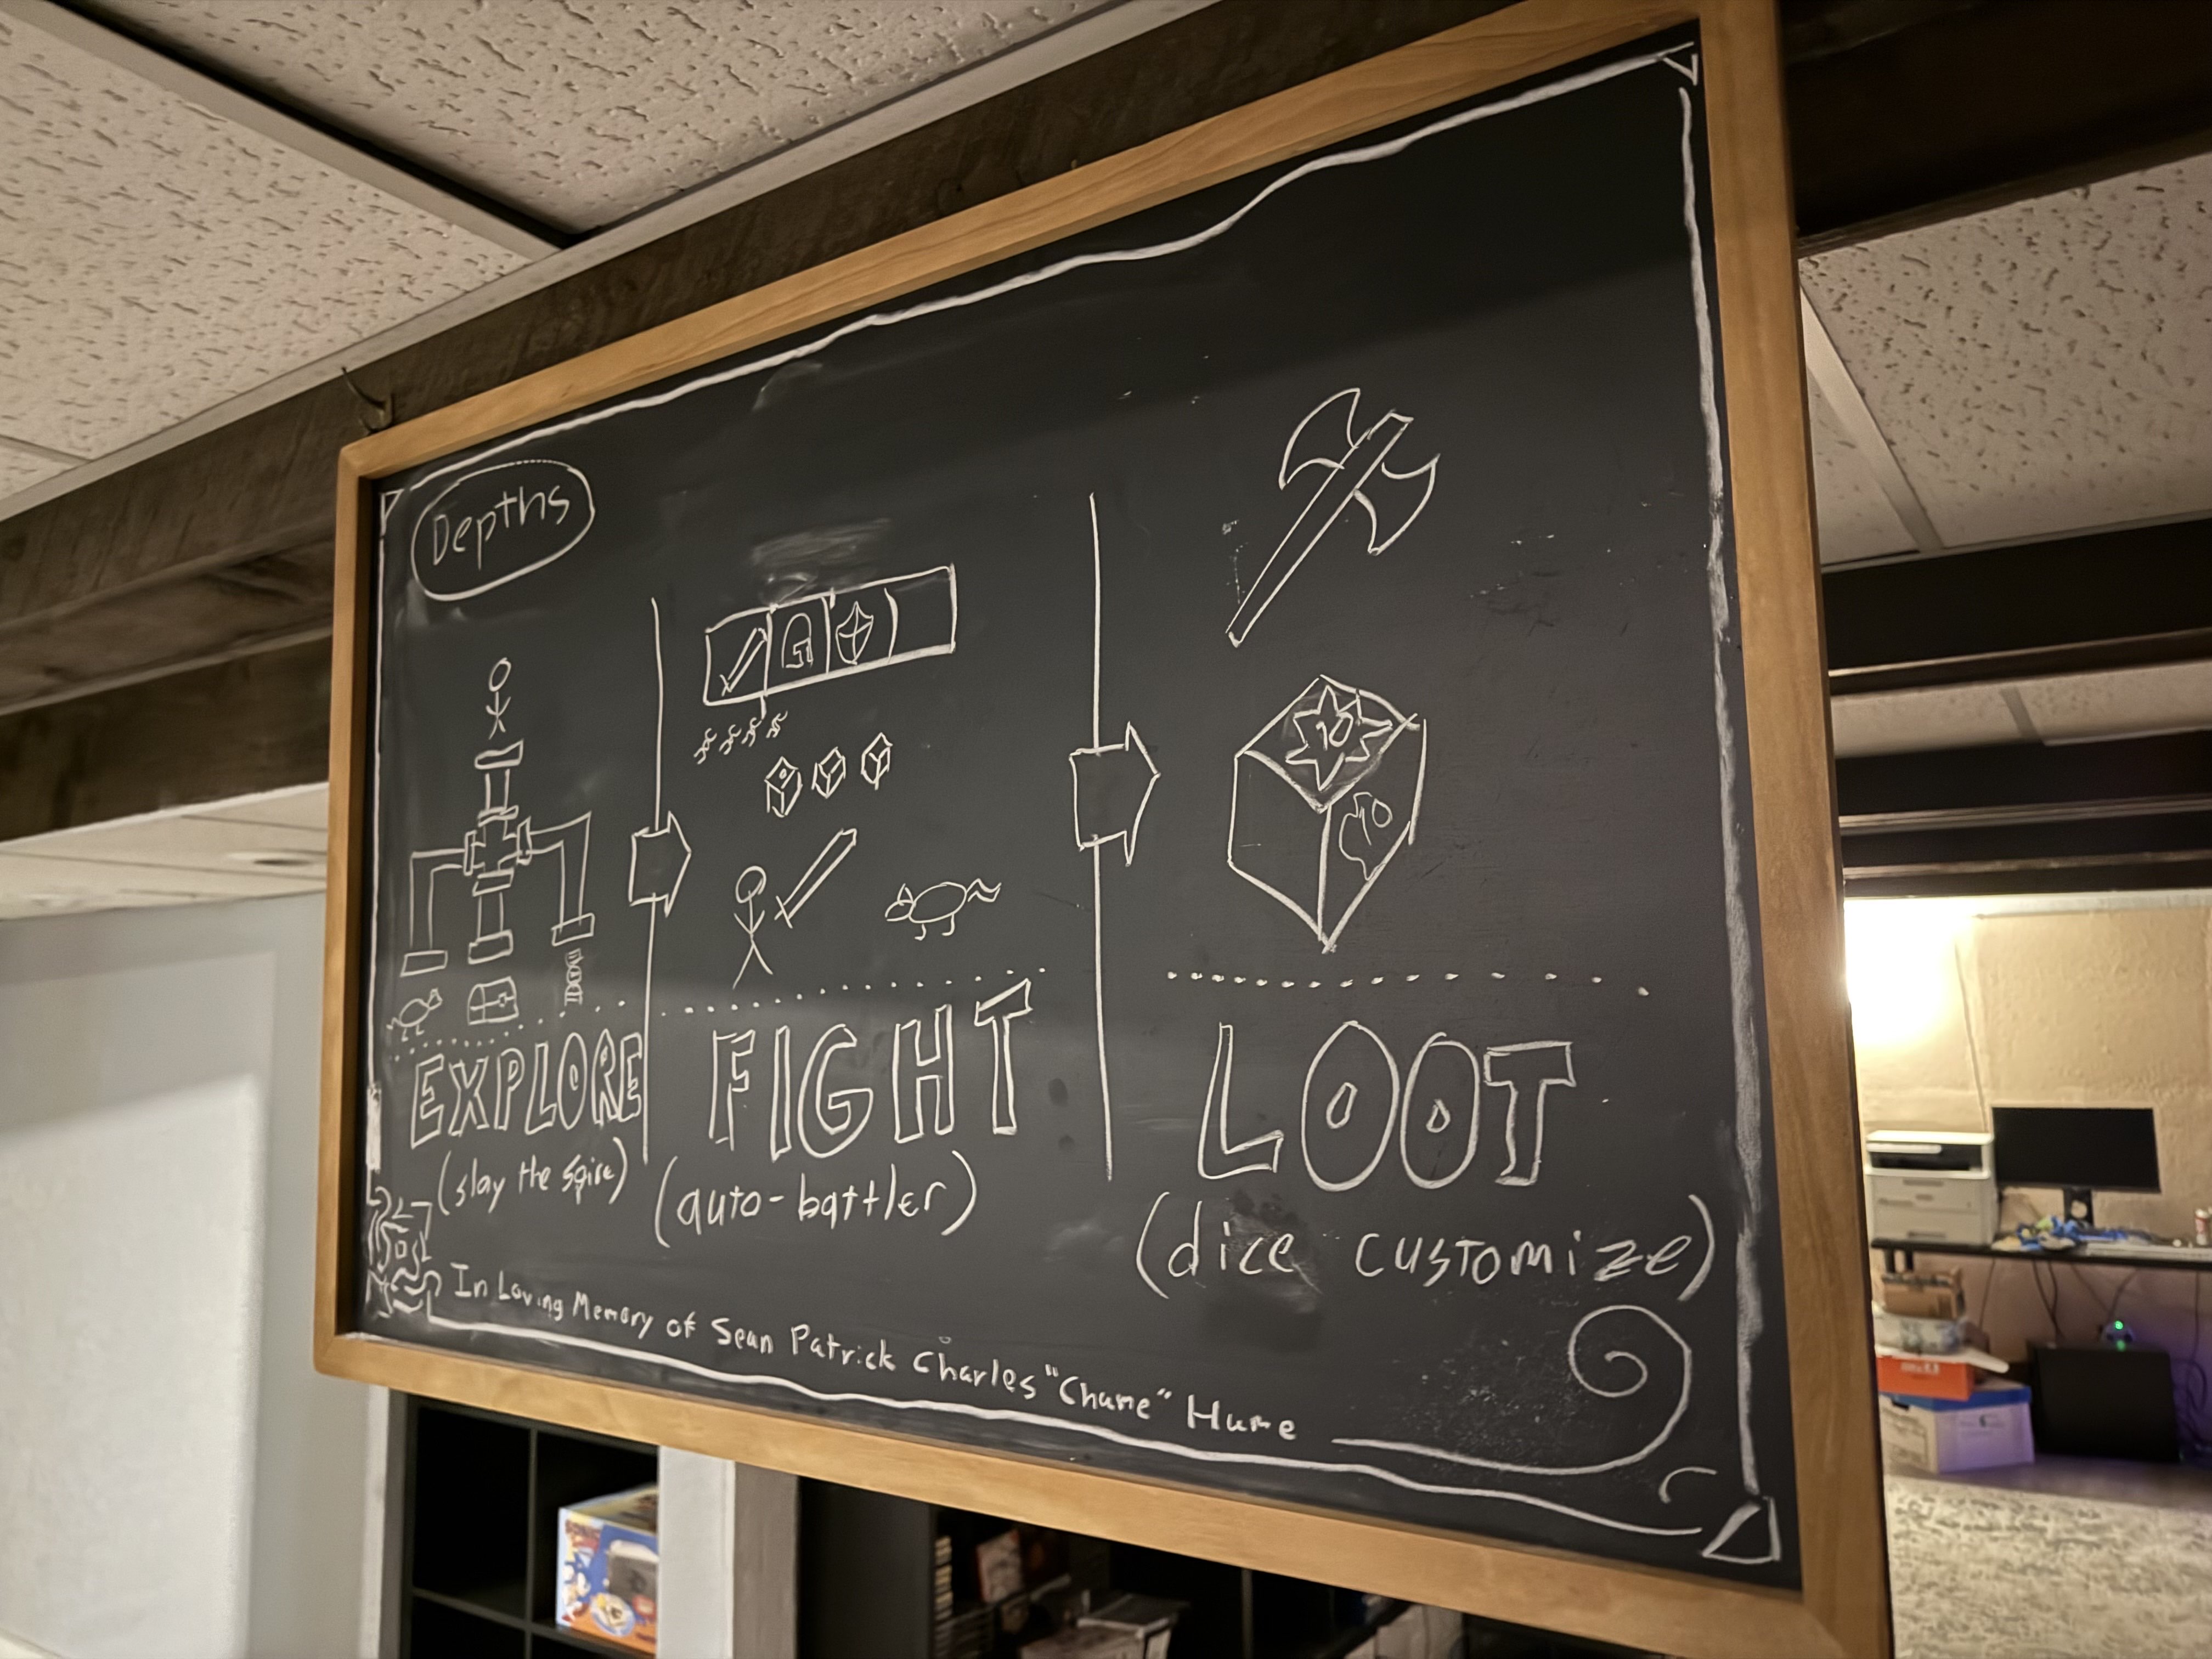 Depths
EXPLORE
(slay the spire)
FIGHT
(auto-battler)
LOOT
(dice customize)
In Loving Memory of Sean Patrick Charles "Chume" Hume
SONIC